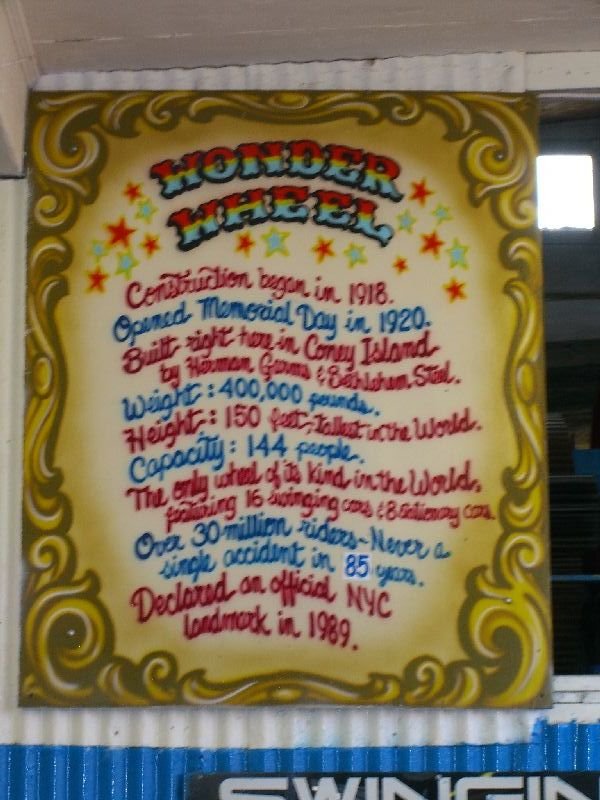 WONDER
WHEEL
Construction began in 1918.
Opened Memorial Day in 1920.
Built right here in Coney Island
by Herman Garms & Bethlehem Steel.
Weight: 400,000 pounds.
Height: 150 feet, tallest in the World.
Capacity: 144 people.
The only wheel of its kind in the World,
featuring 16 swinging cars & 8 stationary cars.
Over 30 million riders-Never a
single accident in 85 years.
Declared an official NYC
landmark in 1989.
SWINGIN